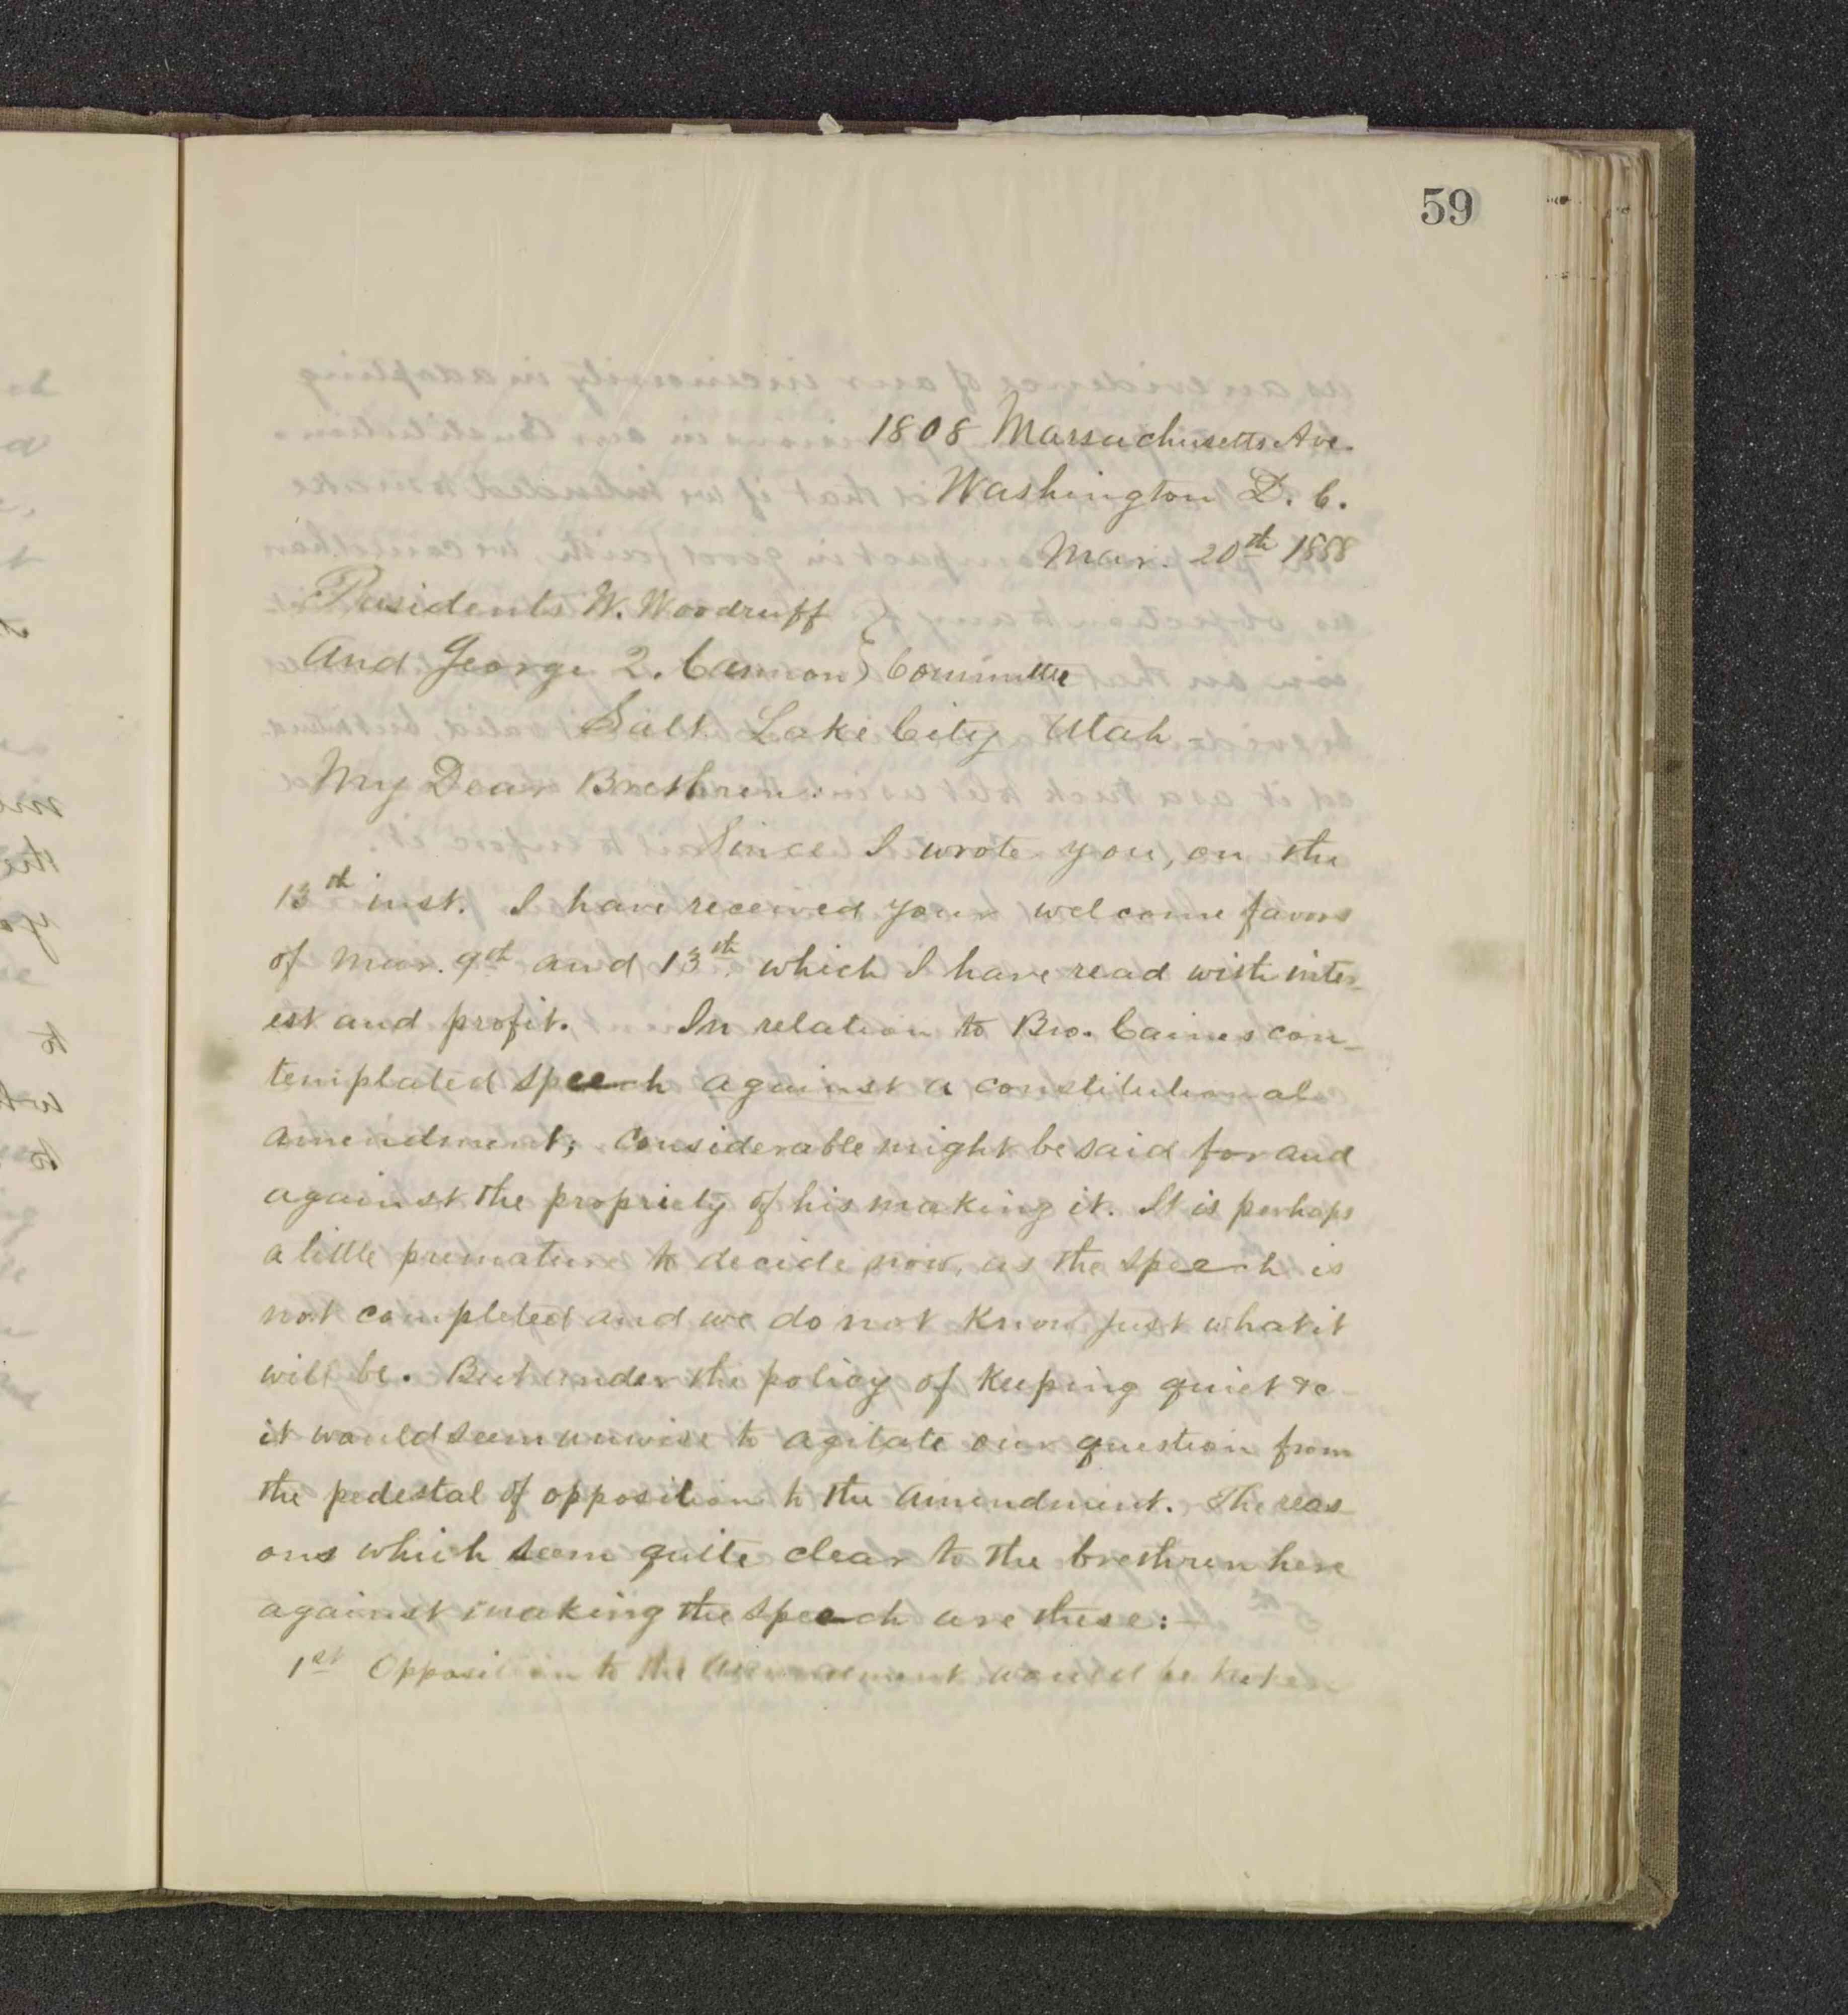 59
1808 Massachusetts Ave.
Washington D. C.
Mar. 20th 1888
Presidents W. Woodruff
And George Q. Cannon } Committee
Salt Lake City Utah -
My Dear Brethren:
Since I wrote you, on the
13th inst. I have received your welcome favors
of Mar. 9th and 13th. which I have read with inter-
est and profit. In relation to Bro. Caines con-
templated speech against a constitutional
amendment; considerable might be said for and
against the propriety of his making it. It is perhaps
a little premature to decide now, as the speech is
not completed and we do not know just what it
will be. But under the policy of keeping quiet &c
it would seem unwise to agitate our question from
the pedestal of opposition to the amendment. The reas-
ons which seem quite clear to the brethren here
against making the speech are these:-
1st Opposition to the amendment would be taken